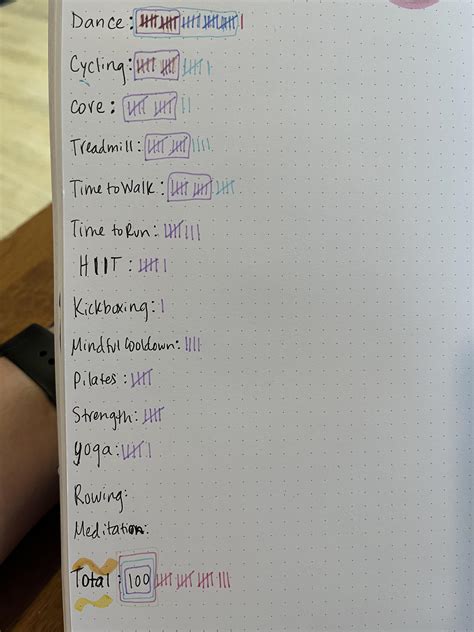 Dance:
Cycling:
Core:
Treadmill:
Time to Walk:
Time to Run:
HIIT:
Kickboxing:
Mindful Cooldown:
Pilates:
Strength:
Yoga:
Rowing:
Meditation:
Total: 100